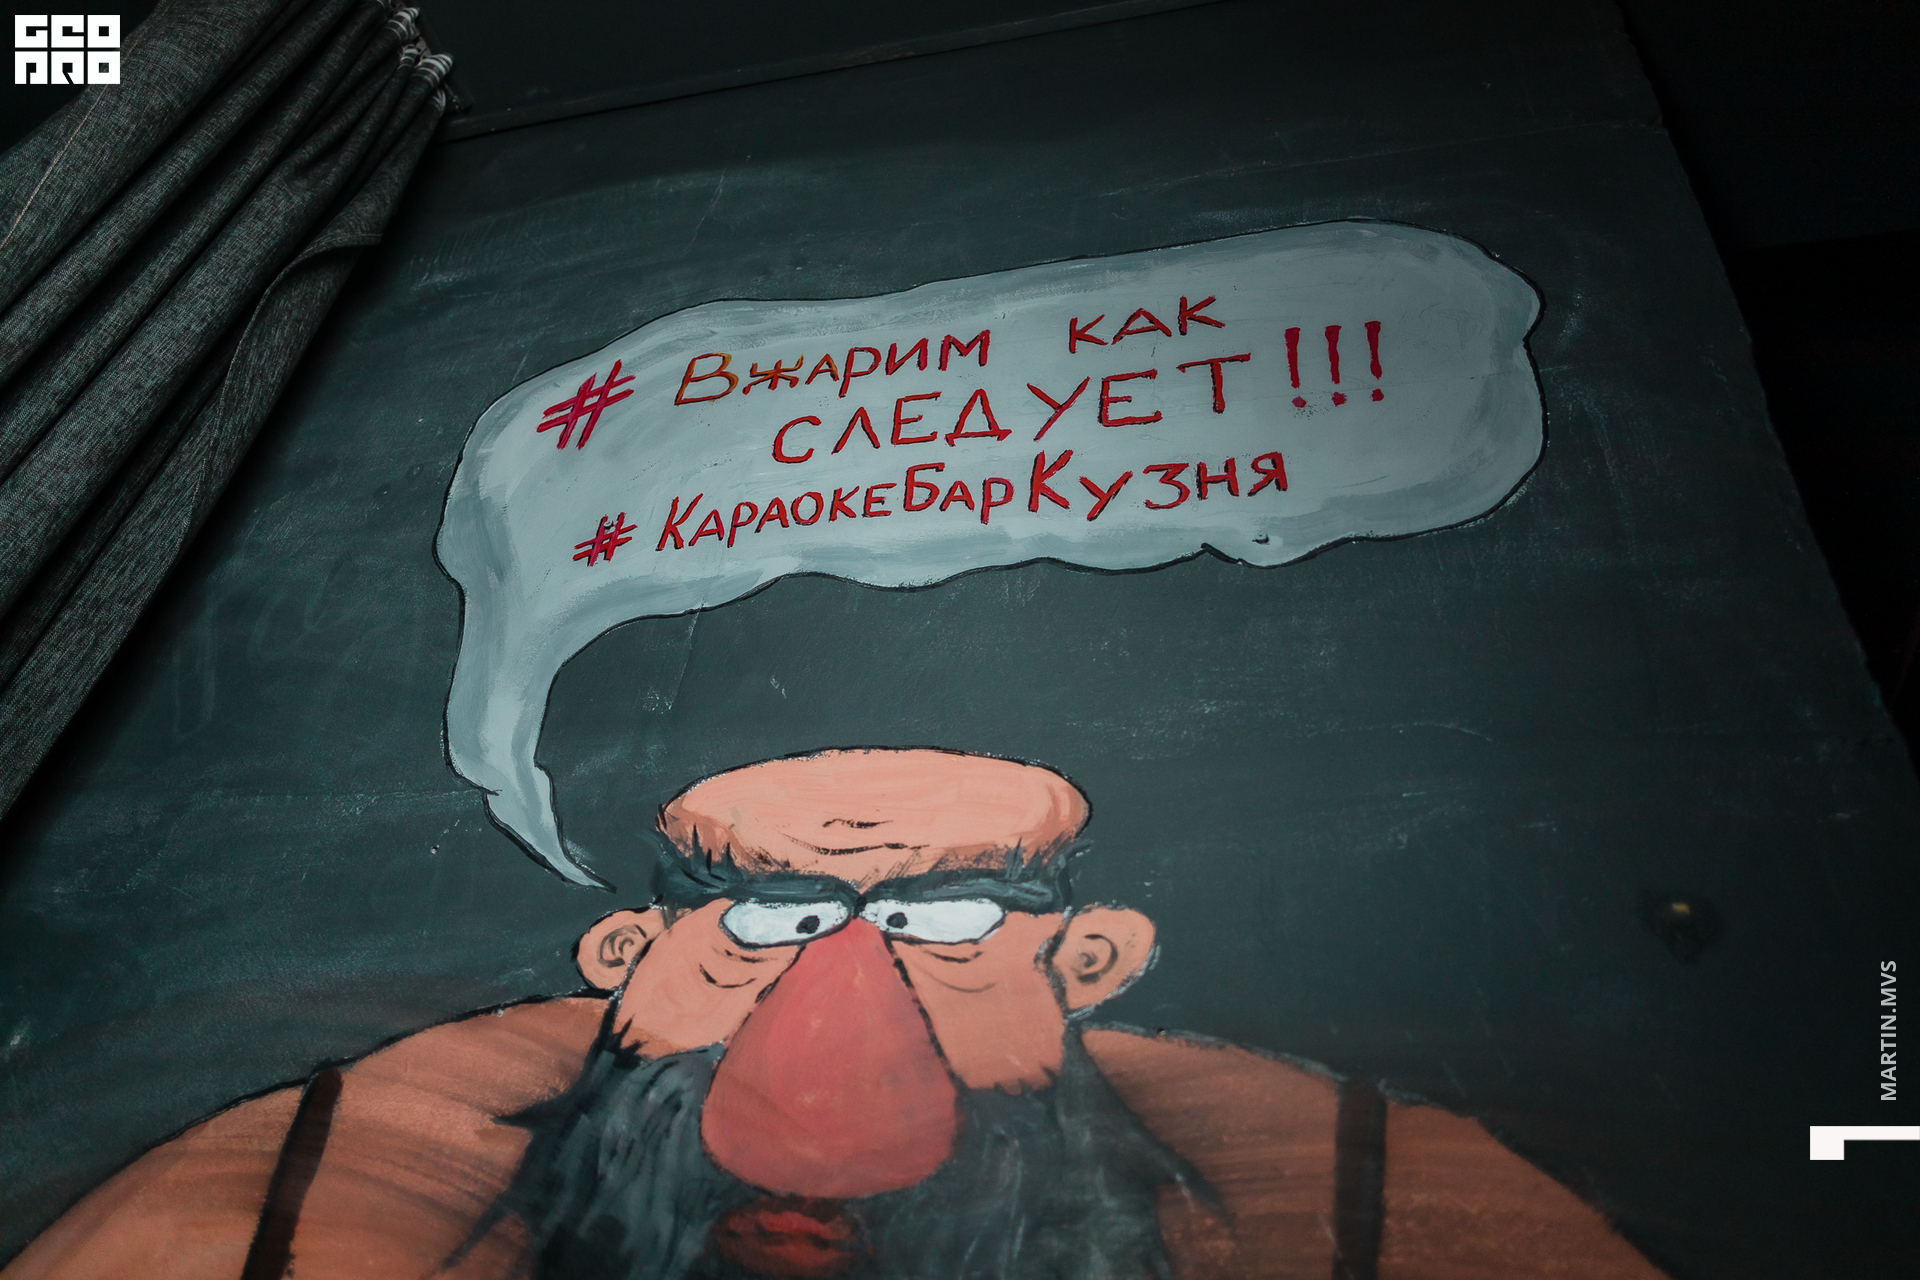 GEO
PRO
# Вжарим как
следует!!!
#КараокеБарКузня
MARTIN.MVS